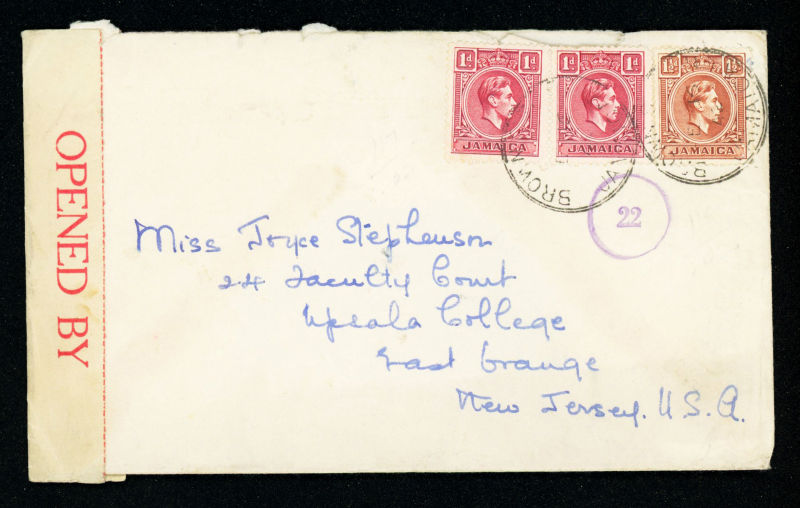 OPENED BY
1d 1d
JAMAICA
1d 1d
JAMAICA
1½d 1½d
JAMAICA
22
Miss Joyce Stephenson
24 Faculty Court
Upsala College
East Orange
New Jersey. U.S.A.